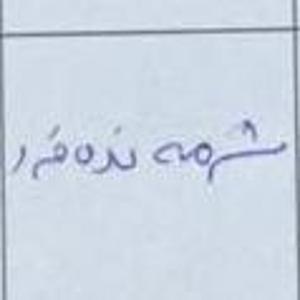 شرمه نده فرد